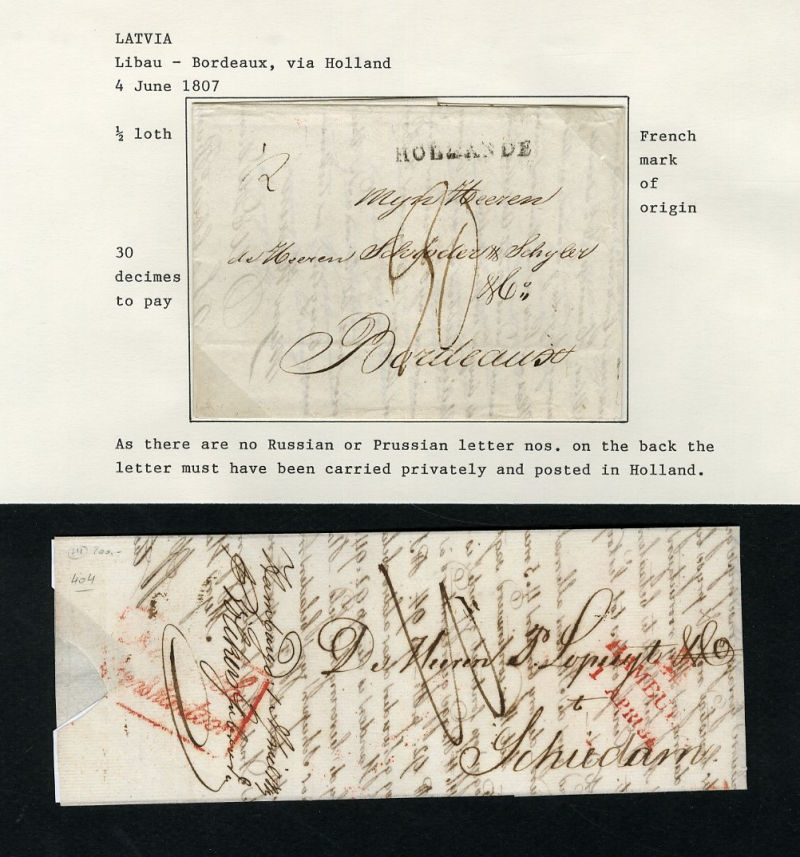 LATVIA
Libau - Bordeaux, via Holland
4 June 1807
½ loth
HOLLANDE
French
mark
of
origin
½
Myn Heeren
30
decimes
to pay
de Heeren Schröder & Schyler
& Co
30
Bordeaux
As there are no Russian or Prussian letter nos. on the back the
letter must have been carried privately and posted in Holland.
200.-
404
De Heeren P. Lopuyt & Co
t
Schiedam
1 APRIL